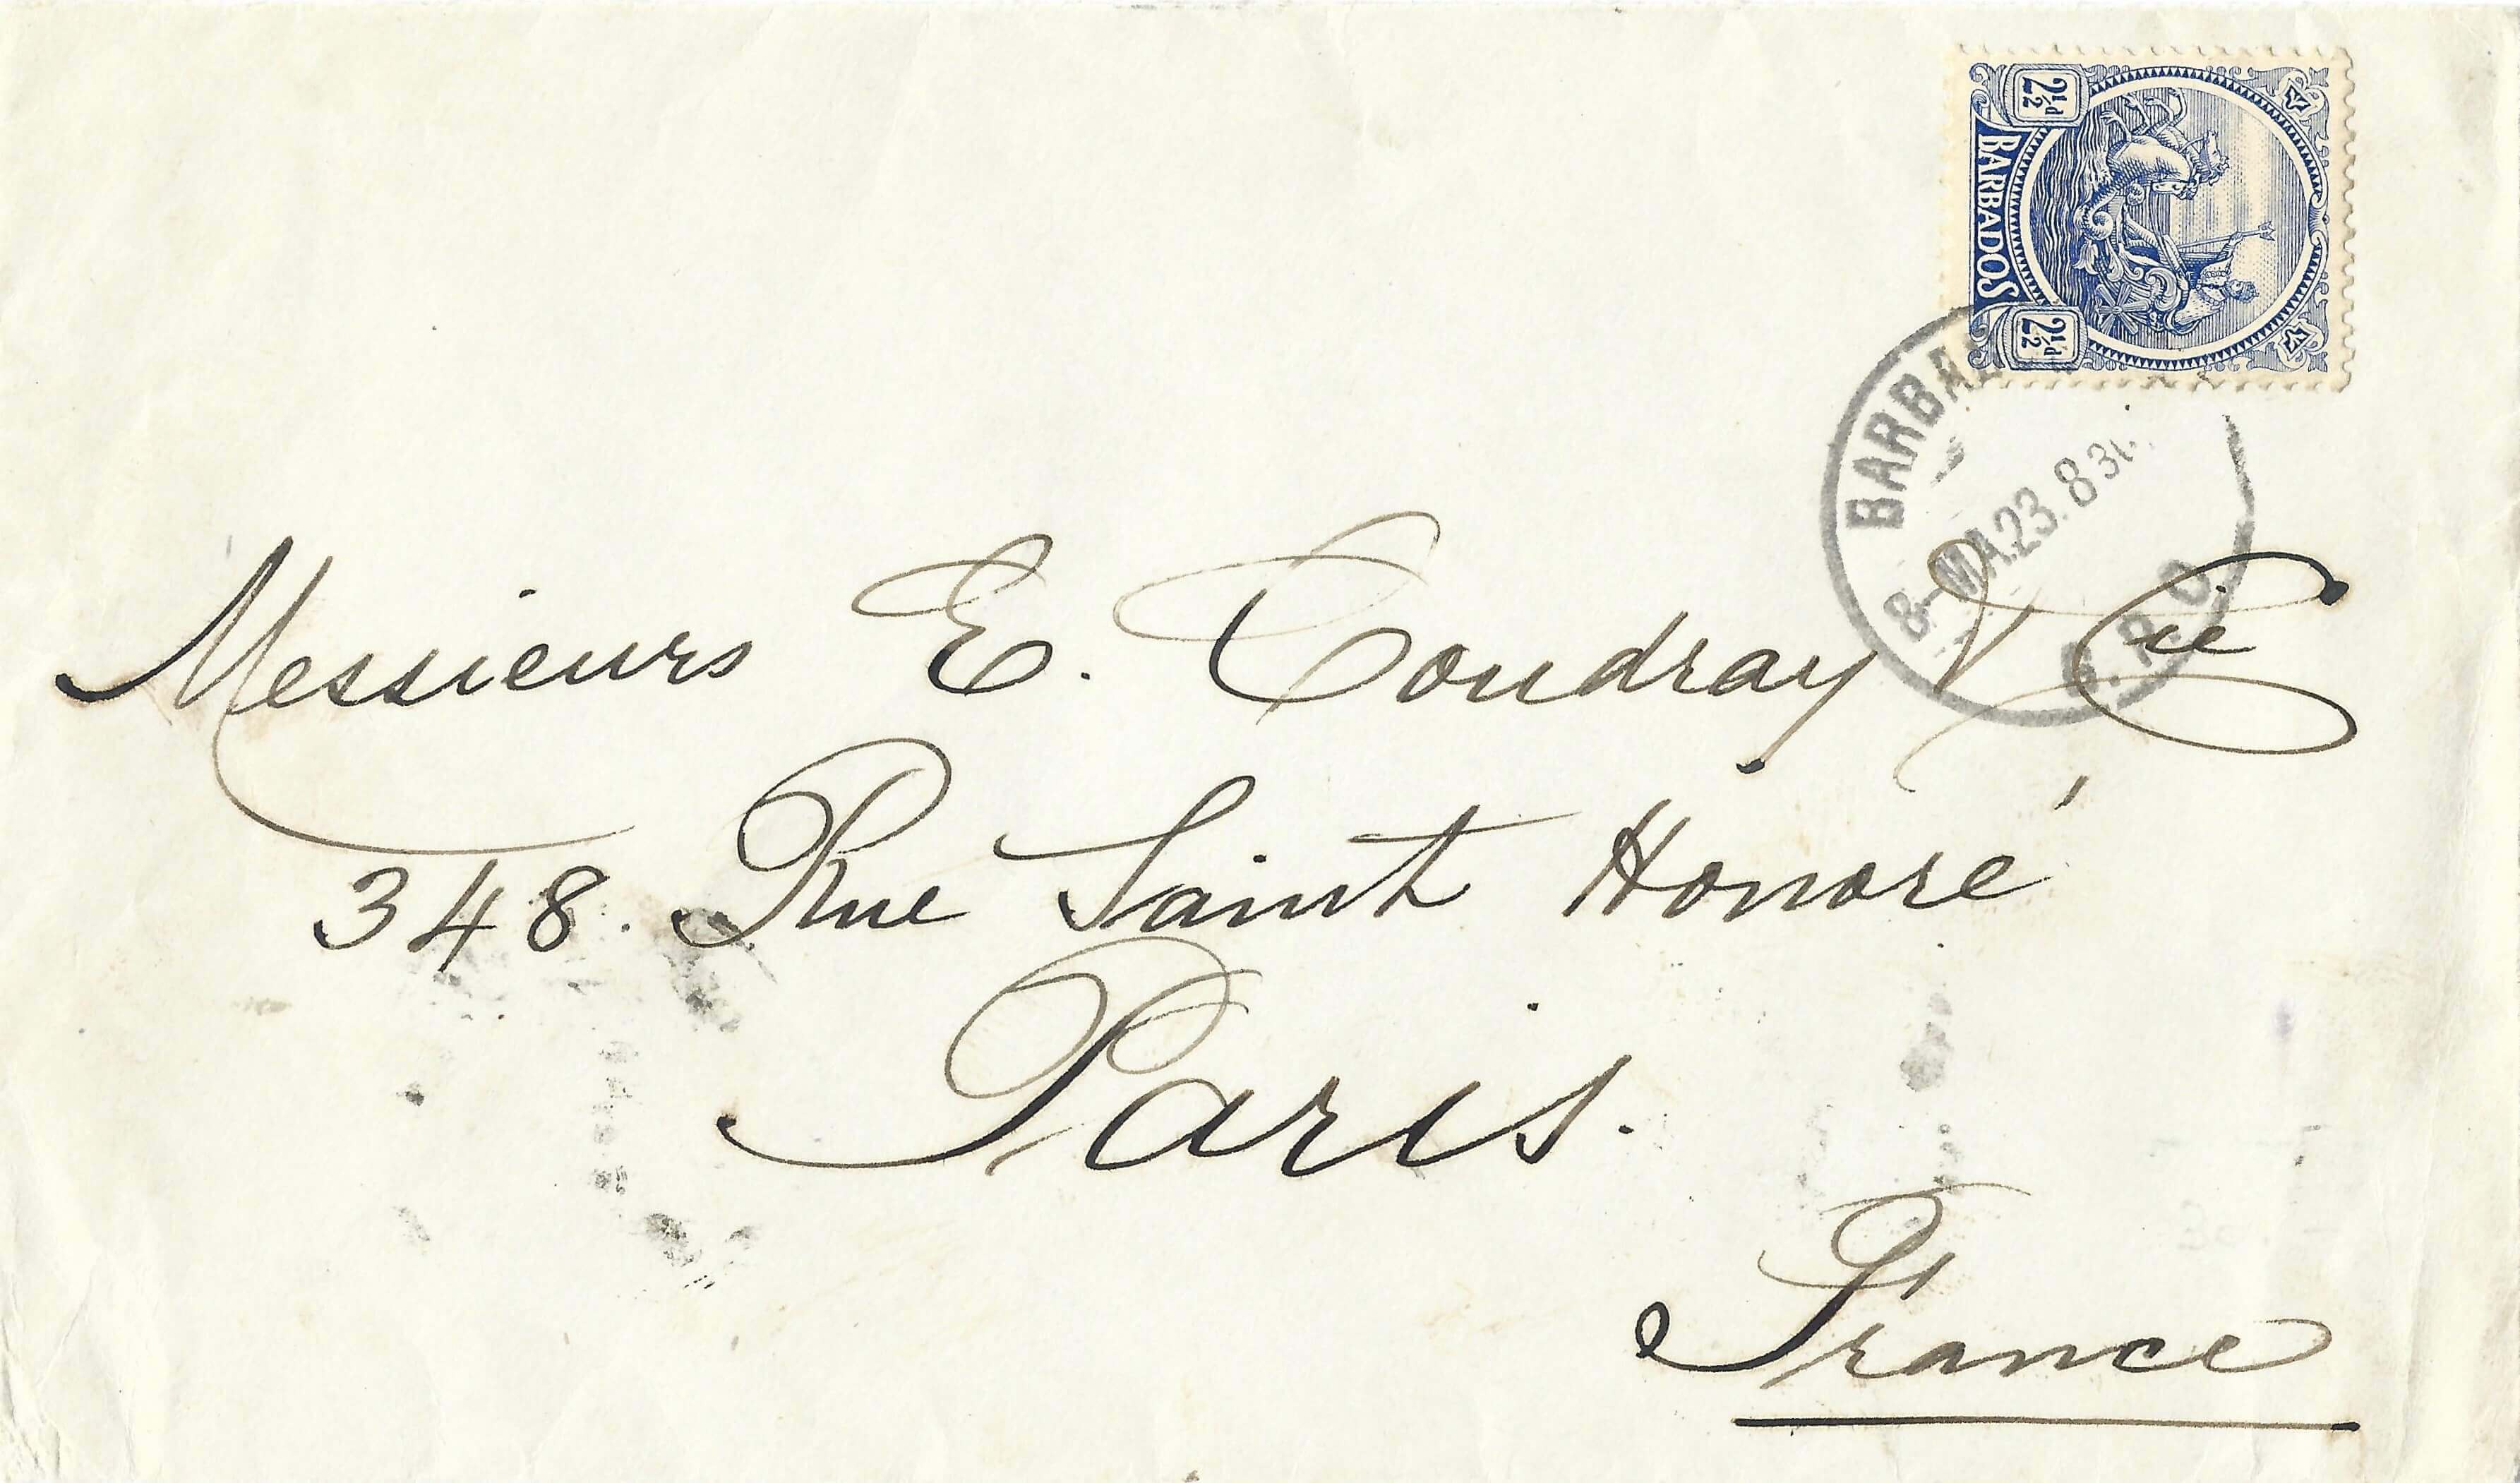 2½d BARBADOS 2½d
BARBAD
8-MA.23.830
G.P.O.
Messieurs E. Coudray & Cie
348. Rue Saint Honoré
Paris.
France